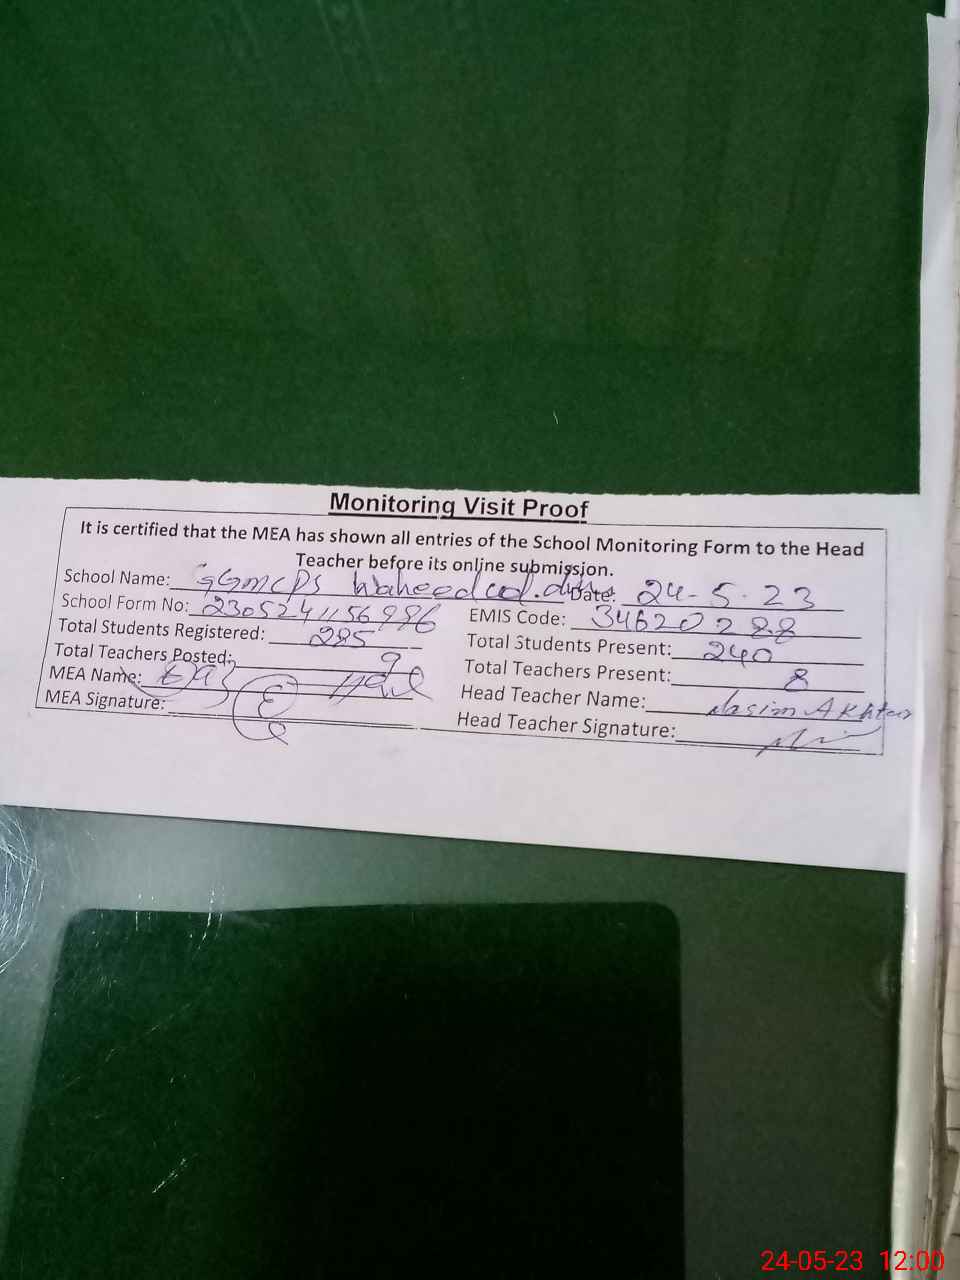 Monitoring Visit Proof
It is certified that the MEA has shown all entries of the School Monitoring Form to the Head
Teacher before its online submission.
School Name: GGMCPS Waheed ud. din Date: 24-5-23
School Form No: EMIS Code: 34620288
Total Students Registered: 285 Total Students Present: 240
Total Teachers Posted: 9 Total Teachers Present: 8
MEA Name: Head Teacher Name: Nasim Akhtar
MEA Signature: Head Teacher Signature:
24-05-23 12:00